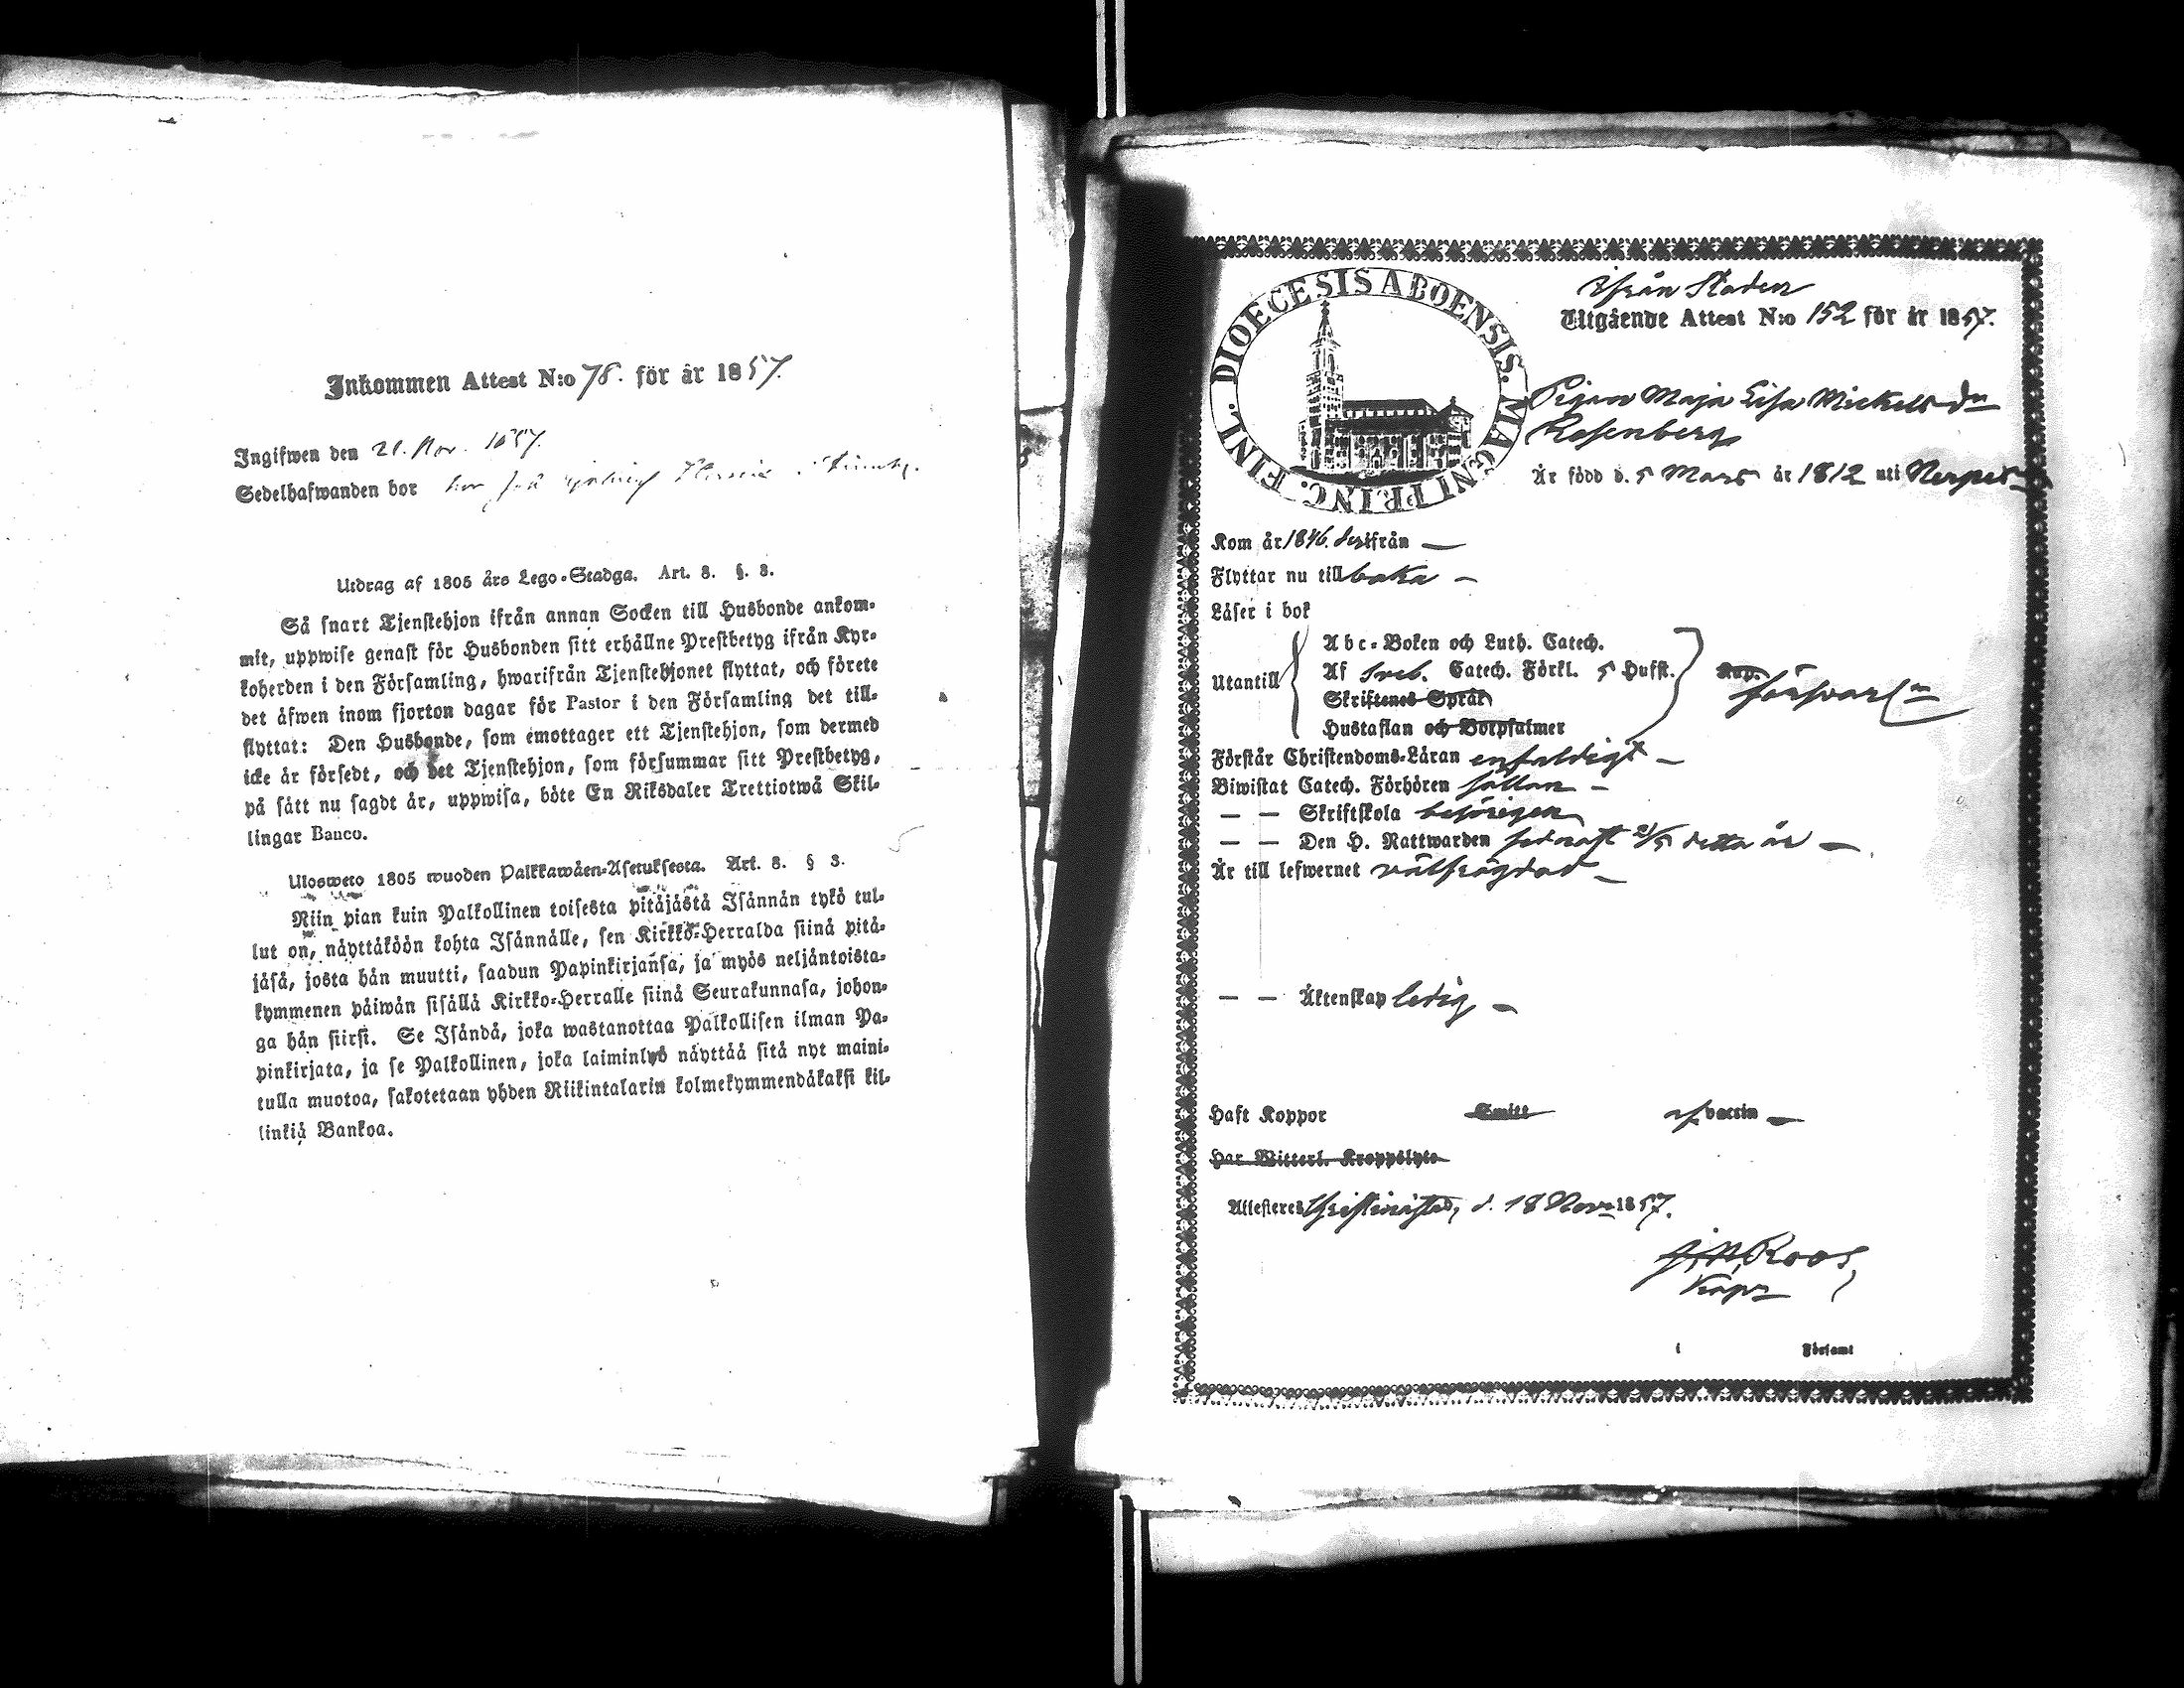 Inkommen Attest N:o 78. för år 1857.
Ingifwen den 21. Nov. 1857.
Sedelhafwanden bor hos
Utdrag af 1805 års Lego-Stadga. Art. 8. §. 3.
Så snart Tjenstehjon ifrån annan Socken till Husbonde ankom-
mit, uppwise genast för Husbonden sitt erhållne Prestbetyg ifrån Kyr-
koherden i den Församling, hwarifrån Tjenstehjonet flyttat, och förete
det äfwen inom fjorton dagar för Pastor i den Församling det till-
flyttat: Den Husbonde, som emottager ett Tjenstehjon, som dermed
icke är försedt, och det Tjenstehjon, som försummar sitt Prestbetyg,
på sätt nu sagdt är, uppwisa, böte En Riksdaler Trettiotwå Skil-
lingar Banco.
Ulosweto 1805 wuoden Palkkawäen-Asetuksesta. Art. 8. § 3.
Niin pian kuin Palkollinen toisesta pitäjästä Isännän tykö tul-
lut on, näyttäköön kohta Isännälle, sen Kirkko-Herralda siinä pitä-
jäsä, josta hän muutti, saadun Papinkirjansa, ja myös neljäntoista-
kymmenen päiwän sisällä Kirkko-Herralle siinä Seurakunnasa, johon-
ga hän siirsi. Se Isändä, joka wastanottaa Palkollisen ilman Pa-
pinkirjata, ja se Palkollinen, joka laiminlyö näyttää sitä nyt maini-
tulla muotoa, sakotetaan yhden Riikintalarin kolmekymmendäkaksi kil-
linkiä Bankoa.
DIOECESIS ABOENSIS. MAGNI PRINC. FINL.
Ifrån Staden
Utgående Attest N:o 152 för år 1857.
Pigan Maja Lisa Mickelsdn
Rosenberg
Är född d. 5 Mars år 1812 uti Nerpes
Kom år 1846. derifrån
Flyttar nu tillbaka
Läser i bok
Utantill
Abc-Boken och Luth. Catech.
Af Sveb. Catech. Förkl. 5 Hufst.
Skriftenes Språk
Hustaflan och Botpsalmer
försvarl
Förstår Christendoms-Läran enfaldigt
Biwistat Catech. Förhören sällan
— — Skriftskola behörigen
— — Den H. Nattwarden sednast 2/5 detta år
Är till lefwernet välfrägdad
— — Äktenskap ledig
Haft Koppor Smitt af vaccin
Har Witterl. Kroppslyte
Attesteres Christinestad, d. 18 Nov. 1857.
Roos,
i Församl